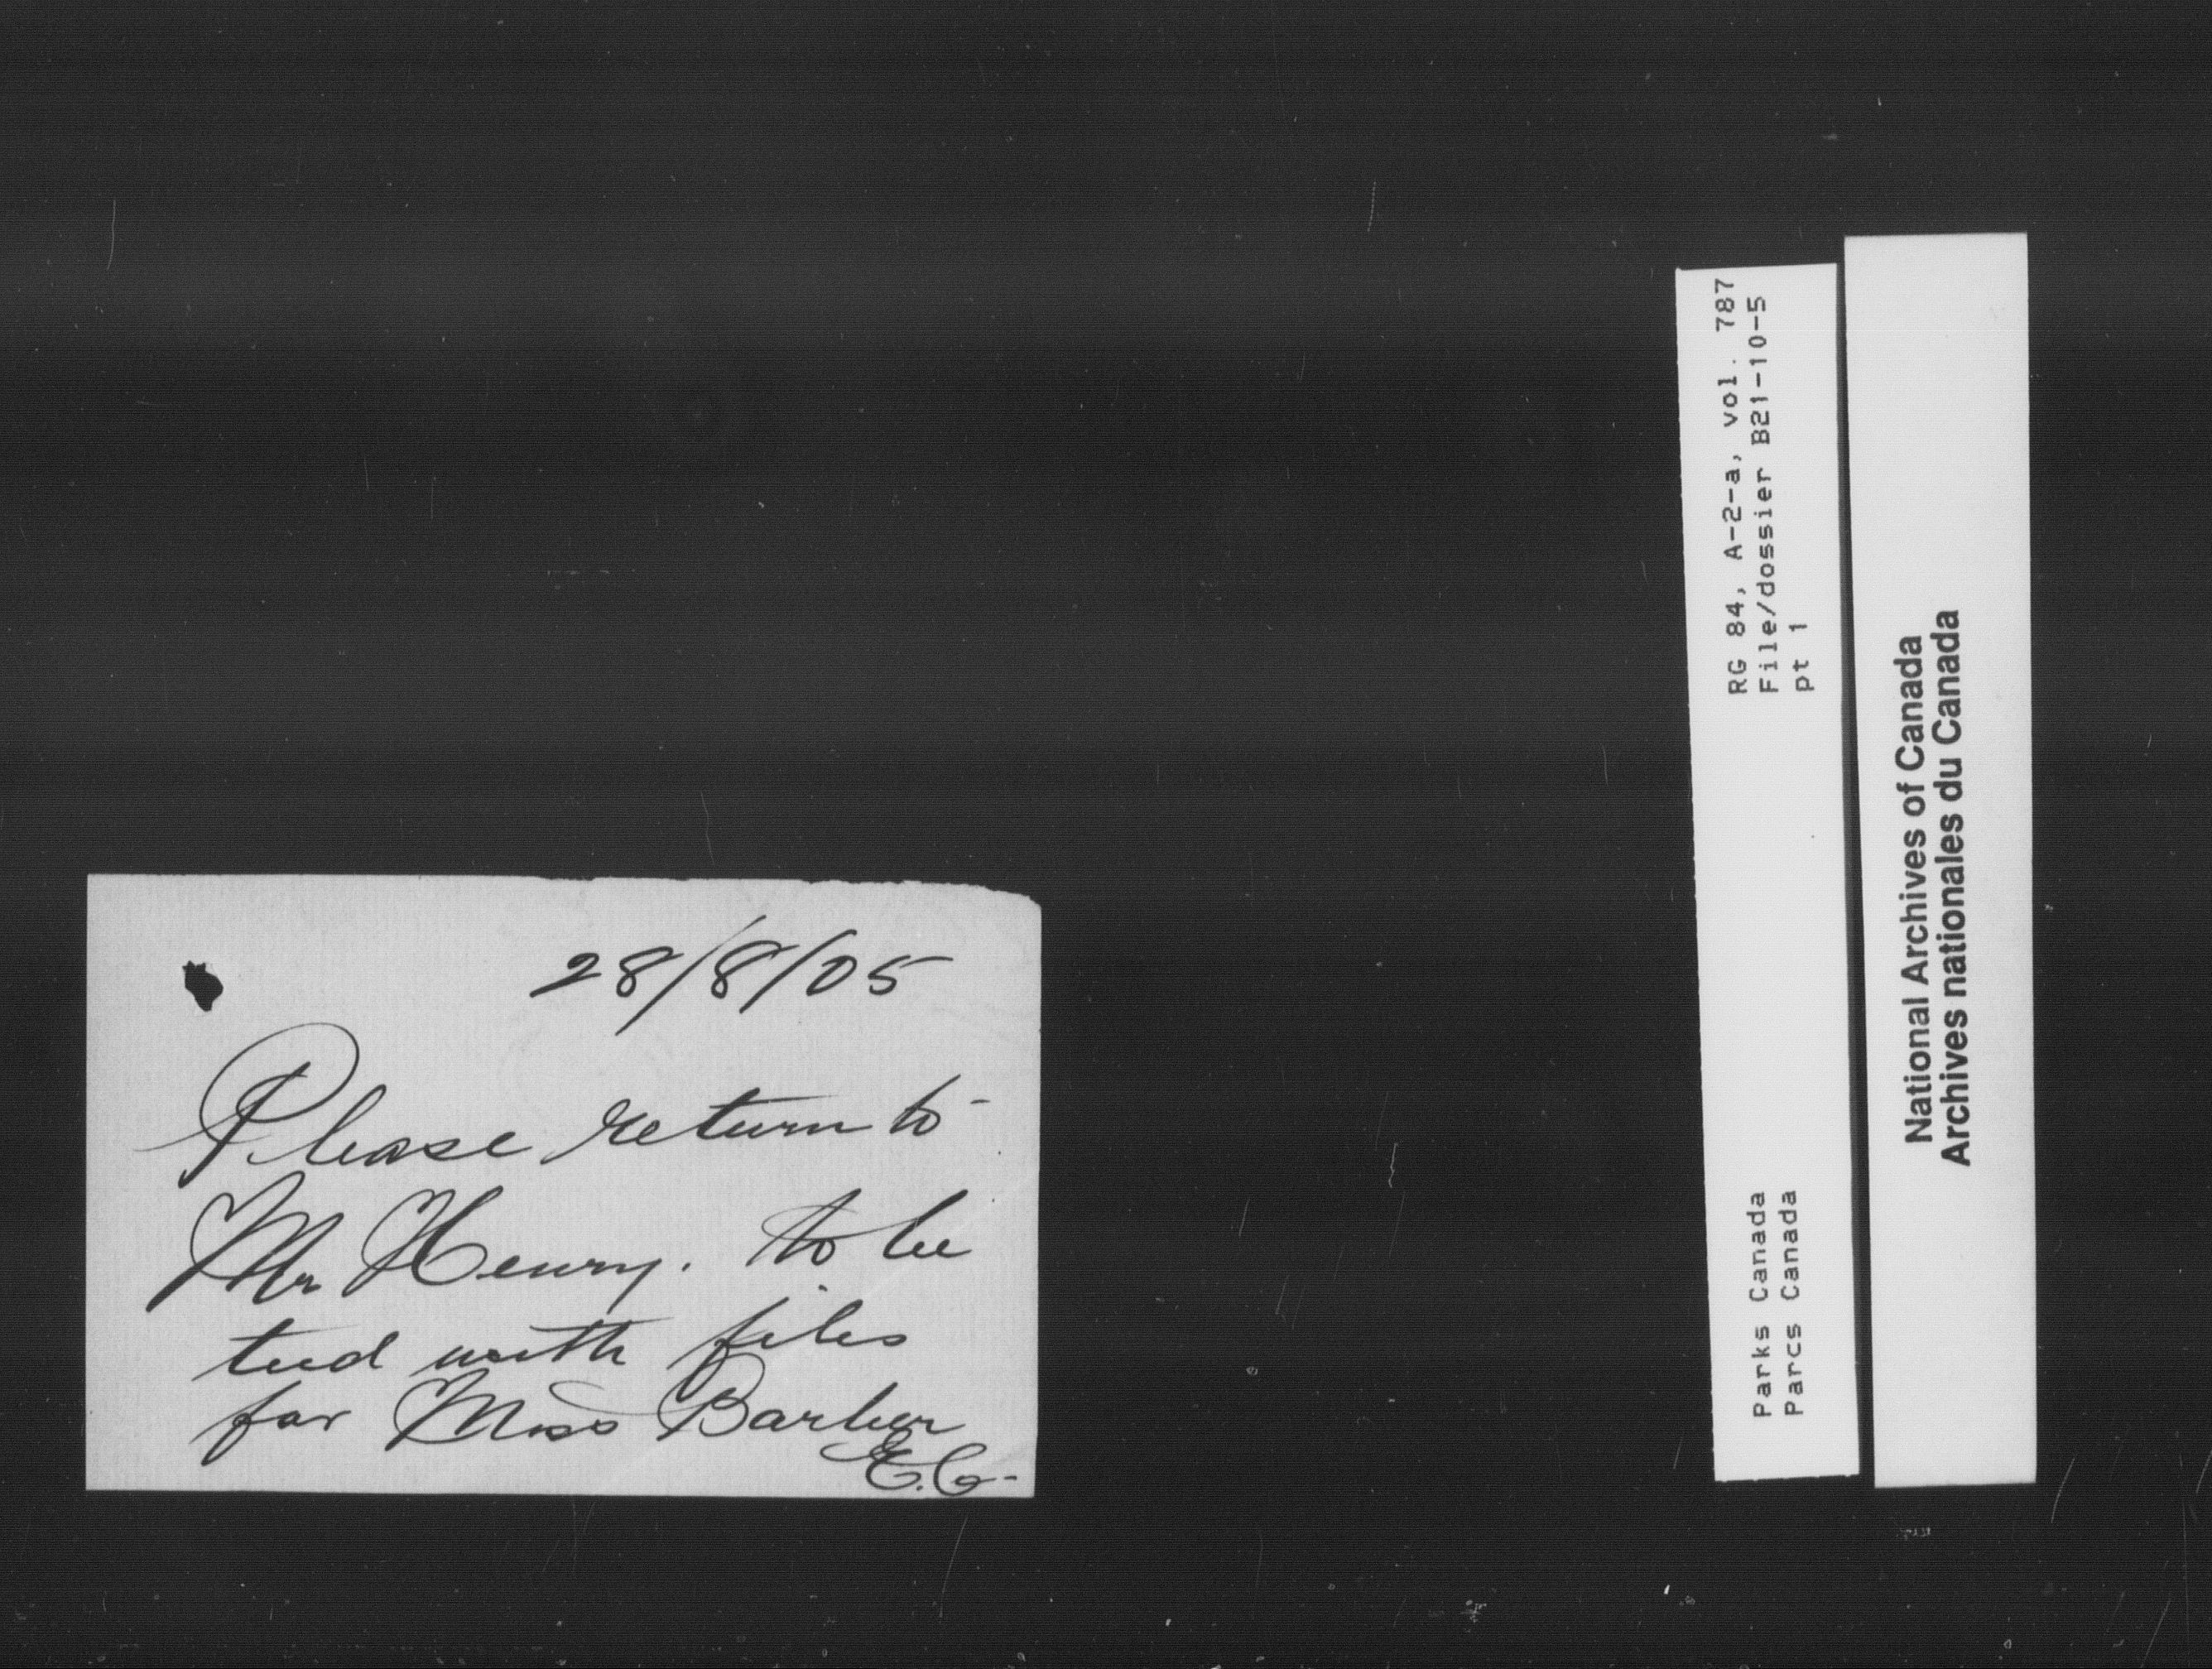 28/8/05
Please return to
Mr Henry. to be
tied with files
for Miss Barber
E.C.
RG 84, A-2-a, vol. 787
File/dossier B21-10-5
pt 1
Parks Canada
Parcs Canada
National Archives of Canada
Archives nationales du Canada